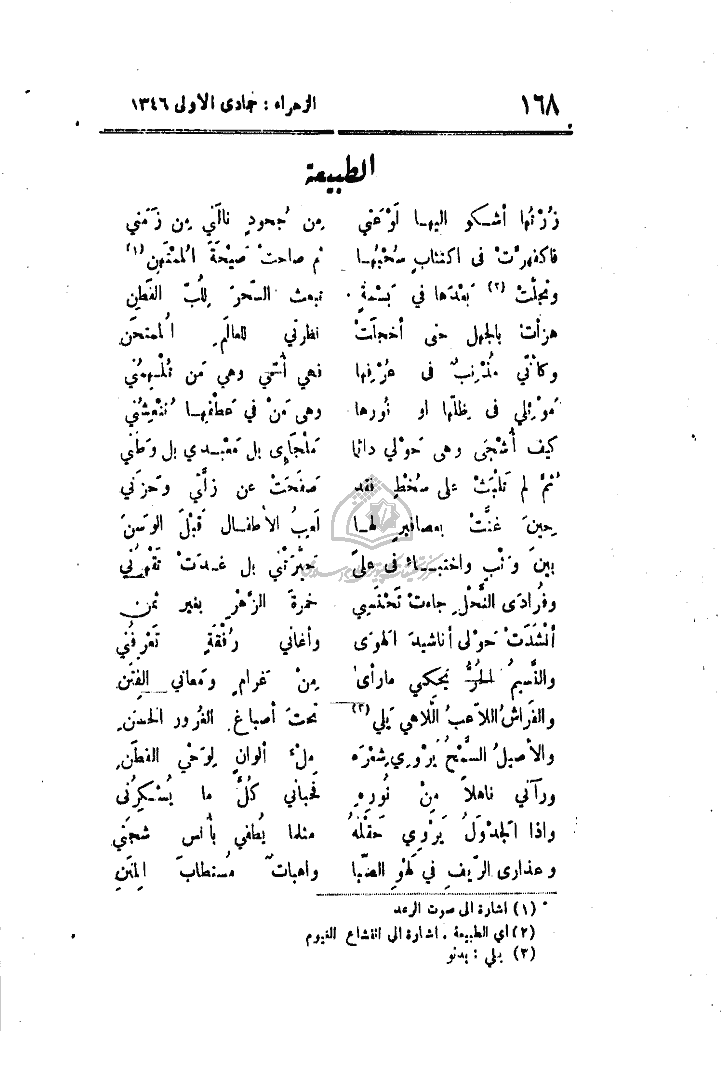 ١٦٨ الزهراء : جمادى الاولى ١٣٤٦
الطبيعة
زُرْتُها أشـكو اليهـا لَوْعَتي مِن جُحودٍ نالَني مِن زَمَني
فاكفهرّتْ فى اكتئابٍ سُحْبُهـا ثم صاحتْ صَيْحَةَ المُمْتَهَنِ (١)
وتجلّتْ (٢) بَعْدَها في بَسْمَةٍ تبعث السّحرَ لِلُبّ الفَطِنِ
هزأتْ بالجهل حتى أخجلَتْ نظرتي للعالَمِ المُمتحَنِ
وكأنّي مُذْنِبٌ فى عُرْفِها فهي أُمّي وهي مَن تُلْهِمُني
مَوْئِلي فى ظِلّها او نُورها وهى مَنْ في عَطفهـا تُنْعِشُني
كيف أُشْجَى وهى حَوْلي دائما مَلْجَأى بل مَعْبَدي بل وَطَني
ثمَّ لم تَلْبَثْ على سُخْطٍ فقد صَفَحَتْ عن زَلَّتي وحَزَني
حِينَ غَنَّتْ بعصافيرٍ لهـا لَعِبُ الأطفـال قَبْلَ الوَسَنِ
بينَ وَثْبٍ واختبـاءٍ فى عَلَىَّ حيّرَتْني بل غـدَتْ تَقْهَرُني
وفُرادَى النَّحْلِ جاءتْ تَحْتَسِي خمرةَ الزَّهْرِ بغير ثمنِ
أنْشَدَتْ حَوْلى أناشيدَ الهَوَى وأغاني رُفْقَةٍ تَعْرِفُني
والنَّسيمُ الحُرُّ يَحكي مارأى مِنْ غَرامٍ ومَعاني الفِتَنِ
والفَراشُ اللاّعبُ اللاّهي يَلِي (٣) تحتَ أصباغِ الغُرور الحَسَنِ
والأصيلُ السَّمْحُ يَرْوِي شِعْرَه مِلْءَ ألوانٍ لِوَحْي الفَطِنِ
ورآني ناهلاً مِنْ نُورهِ فحَباني كُلَّ ما يُسْكِرُنى
واذا الجَدْوَلُ يَرْوِي حَقْلَهُ مثلما يُطْفي بأُنسٍ شَجَني
وعذارى الرّيفِ في لَهْوِ الصِّبا واهباتٌ مُستطابَ المِنَنِ
(١) اشارة الى صوت الرعد
(٢) أي الطبيعة . اشارة الى انقشاع الغيوم
(٣) يلي : يدنو